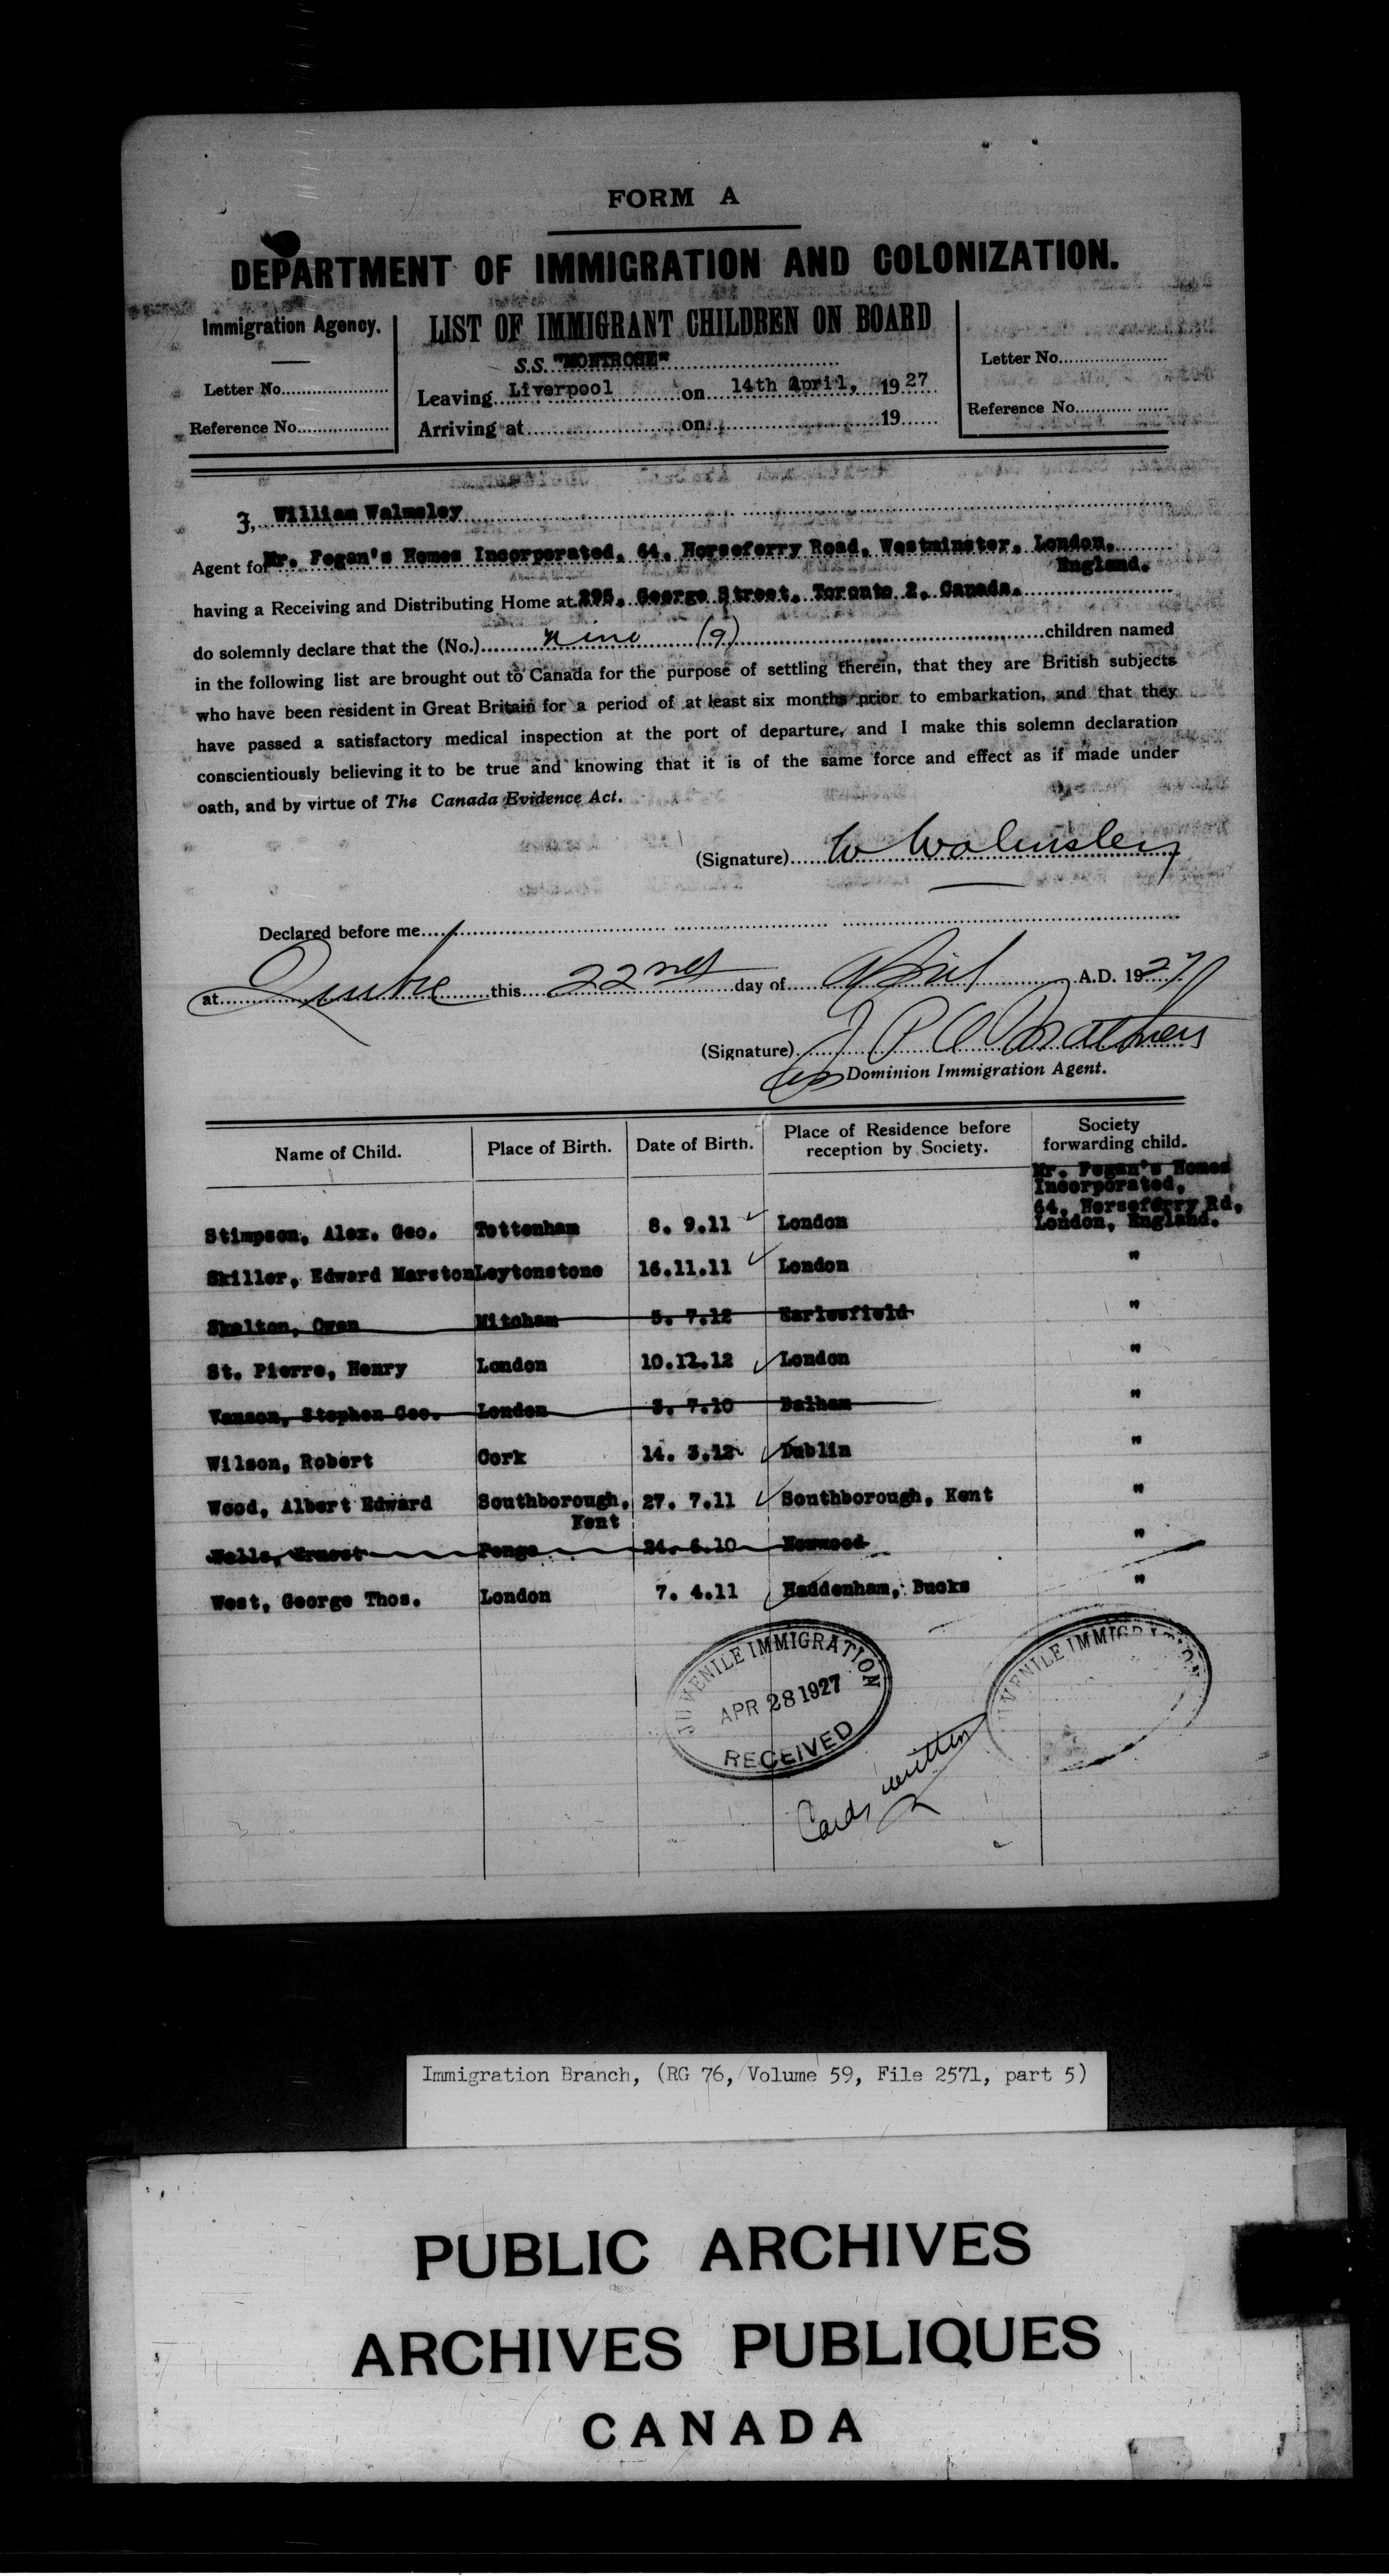 FORM A
DEPARTMENT OF IMMIGRATION AND COLONIZATION.
Immigration Agency.
Letter No.
Reference No.
LIST OF IMMIGRANT CHILDREN ON BOARD
S.S. "MONTROSE"
Leaving Liverpool on 14th April, 1927
Arriving at on 19
Letter No.
Reference No.
I, William Walmsley
Agent for Mr. Fegan's Homes Incorporated, 64, Horseferry Road, Westminster, London, England.
having a Receiving and Distributing Home at 295, George Street, Toronto 2, Canada.
do solemnly declare that the (No.) Nine (9) children named
in the following list are brought out to Canada for the purpose of settling therein, that they are British subjects
who have been resident in Great Britain for a period of at least six months prior to embarkation, and that they
have passed a satisfactory medical inspection at the port of departure, and I make this solemn declaration
conscientiously believing it to be true and knowing that it is of the same force and effect as if made under
oath, and by virtue of The Canada Evidence Act.
(Signature) W Walmsley
Declared before me
at Quebec this 22nd day of April A.D. 1927
(Signature)
Dominion Immigration Agent.
Name of Child. Place of Birth. Date of Birth. Place of Residence before reception by Society. Society forwarding child.
Mr. Fegan's Homes
Incorporated,
64, Horseferry Rd,
London, England.
Stimpson, Alex. Geo. Tottenham 8. 9.11 London
Skiller, Edward Marston Leytonstone 16.11.11 London "
Skelton, Owen Mitcham 5. 7.12 Earlesfield "
St. Pierre, Henry London 10.12.12 London "
Vanson, Stephen Geo. London 3. 7.10 Balham "
Wilson, Robert Cork 14. 3.12 Dublin "
Wood, Albert Edward Southborough, Kent 27. 7.11 Southborough, Kent "
Wells, Ernest Penge 24. 6.10 Norwood "
West, George Thos. London 7. 4.11 Haddenham, Bucks "
JUVENILE IMMIGRATION
APR 28 1927
RECEIVED
JUVENILE IMMIGRATION
Cards written
Immigration Branch, (RG 76, Volume 59, File 2571, part 5)
PUBLIC ARCHIVES
ARCHIVES PUBLIQUES
CANADA